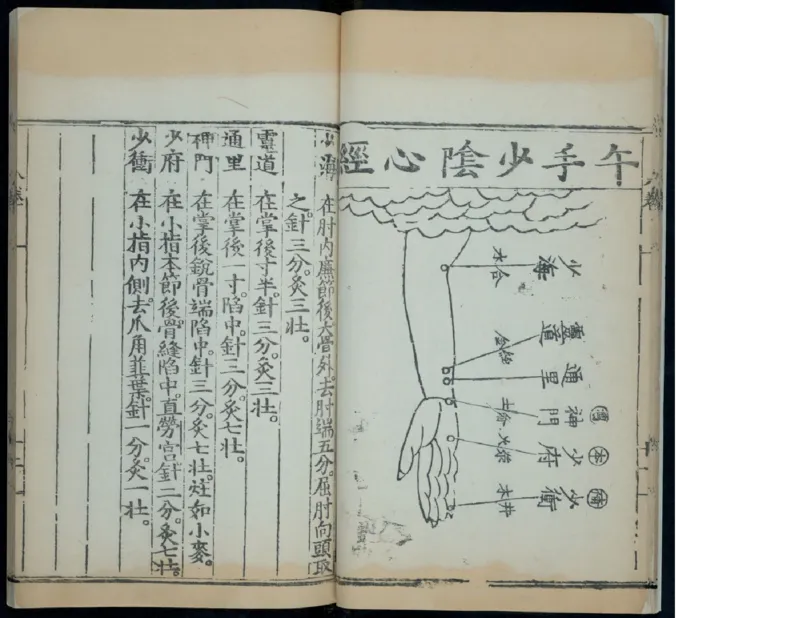 午手少陰心經
少海
水合
靈道
金經
通里
神門
土俞
少府
火滎
少衝
木井
本
少海 在肘內廉節後大骨外。去肘端五分。屈肘向頭取
之。針三分。灸三壯。
靈道 在掌後寸半。針三分。灸三壯。
通里 在掌後一寸。陷中。針三分。灸七壯。
神門 在掌後銳骨端陷中。針三分。灸七壯。炷如小麥。
少府 在小指本節後骨縫陷中。直勞宮。針二分。灸七壯。
少衝 在小指內側去爪角韮葉。針一分。灸一壯。